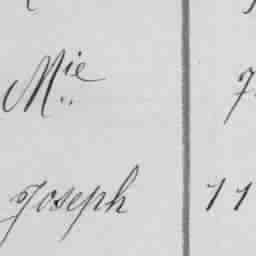 Mie 7
Joseph 11